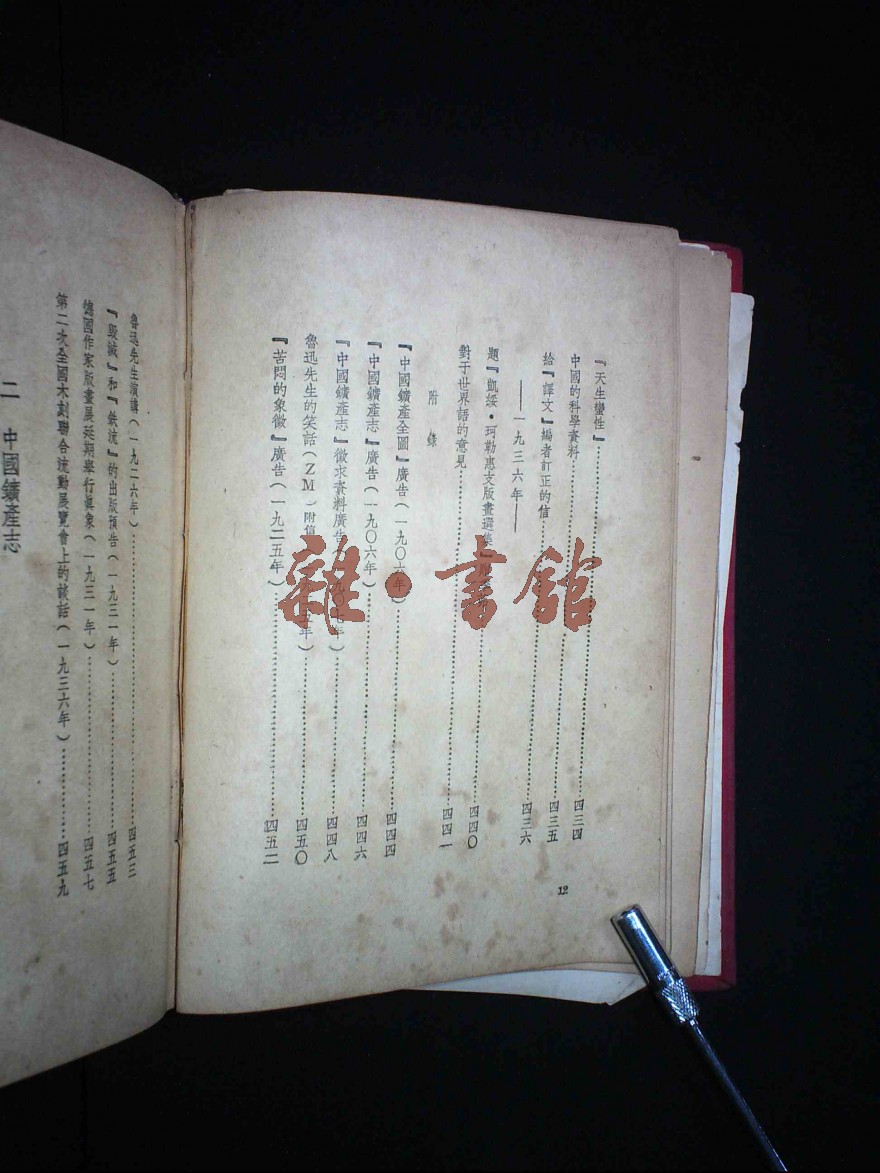 『天生蠻性』……四三四
中國的科學資料……四三五
給『譯文』編者訂正的信……四三六
——一九三六年——
題『凱綏・珂勒惠支版畫選集』……四四〇
對于世界語的意見……四四一
附錄
『中國鑛產全圖』廣告(一九〇六年)……四四四
『中國鑛產志』廣告(一九〇六年)……四四六
『中國鑛產志』徵求資料廣告 九〇七年)……四四八
魯迅先生的笑話(ZM)附信 年)……四五〇
『苦悶的象徵』廣告(一九二五年)……四五二
12
魯迅先生演講(一九二六年)……四五三
『毀滅』和『鉄流』的出版預告(一九三一年)……四五五
德國作家版畫展延期舉行眞象(一九三一年)……四五七
第二次全國木刻聯合流動展覽會上的談話(一九三六年)……四五九
二 中國鑛產志
雜・書館